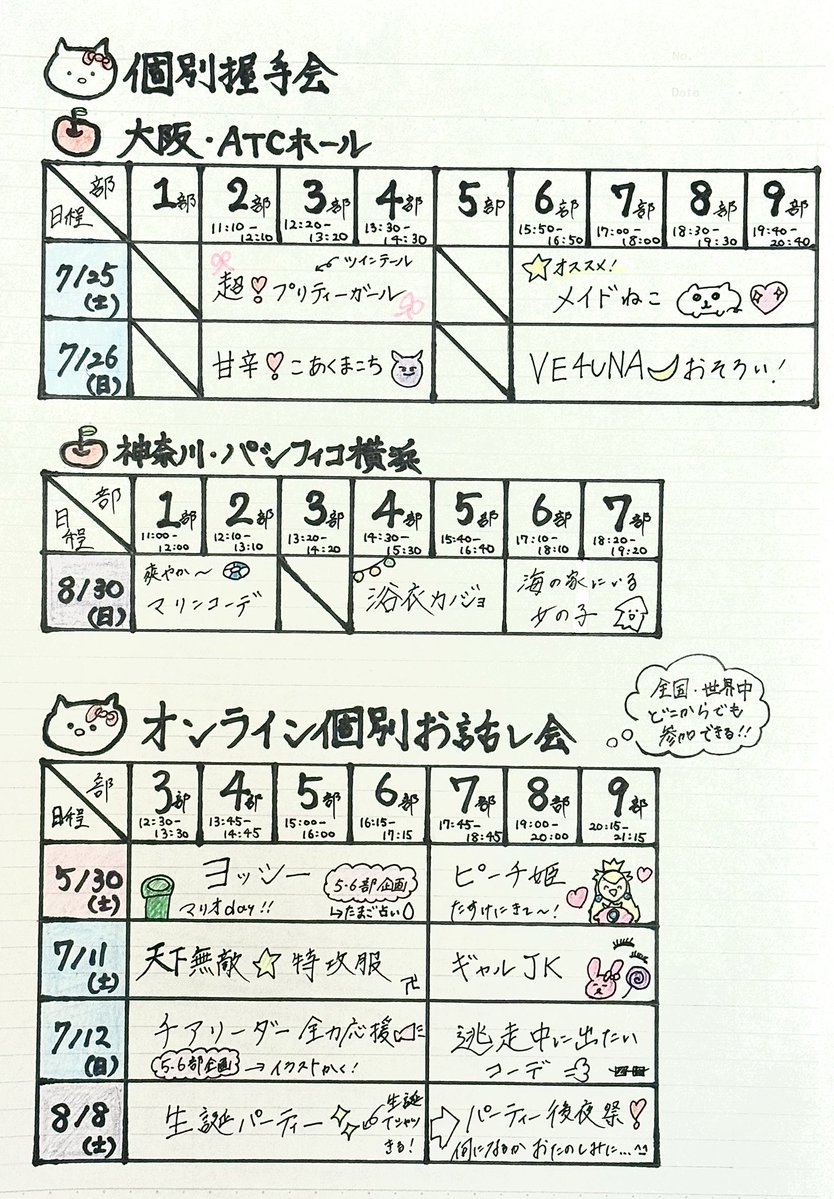 No.
Date
個別握手会
大阪・ATCホール
部
日程
1部
2部
11:10-
12:10
3部
12:20-
13:20
4部
13:30-
14:30
5部
6部
15:50-
16:50
7部
17:00-
18:00
8部
18:30-
19:30
9部
19:40-
20:40
7/25
(土)
ツインテール
超❣プリティーガール
オススメ!
メイドねこ
7/26
(日)
甘辛❣こあくまこち
VE4UNA🌙おそろい!
神奈川・パシフィコ横浜
部
日程
1部
11:00-
12:00
2部
12:10-
13:10
3部
13:20-
14:20
4部
14:30-
15:30
5部
15:40-
16:40
6部
17:10-
18:10
7部
18:20-
19:20
8/30
(日)
爽やか〜
マリンコーデ
浴衣カノジョ
海の家にいる
女の子
全国・世界中
どこからでも
参加できる!!
オンライン個別お話し会
部
日程
3部
12:30-
13:30
4部
13:45-
14:45
5部
15:00-
16:00
6部
16:15-
17:15
7部
17:45-
18:45
8部
19:00-
20:00
9部
20:15-
21:15
5/30
(土)
ヨッシー
マリオday!!
5.6部企画
↳たまご占い
ピーチ姫
たすけにきて〜!
7/11
(土)
天下無敵☆特攻服
卍
ギャルJK
7/12
(日)
チアリーダー全力応援
5.6部企画→イラストかく!
逃走中に出たい
コーデ
8/8
(土)
生誕パーティー
生誕
Tシャツ
きる!
パーティー後夜祭❣
何になるか おたのしみに...^^